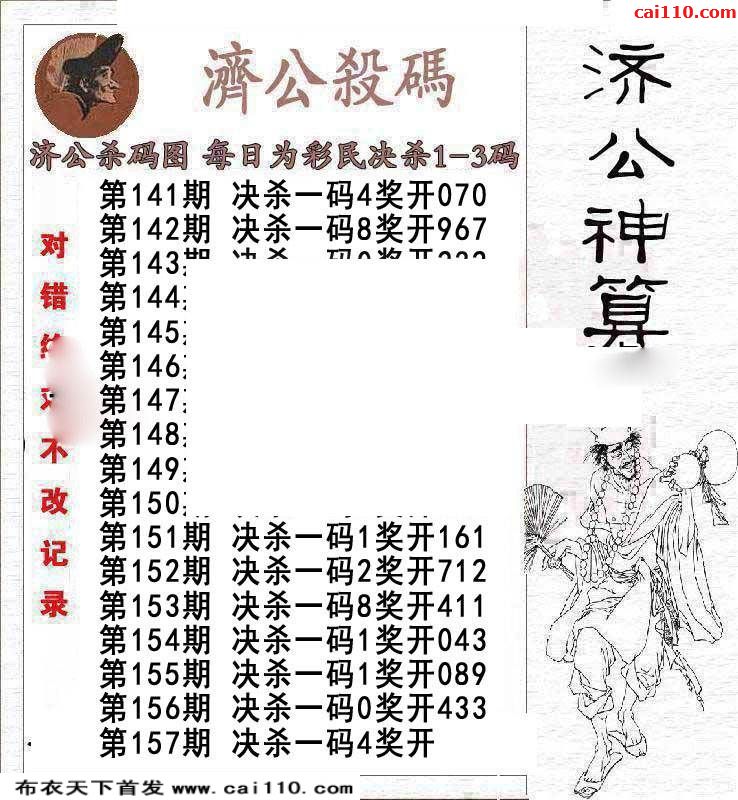 cai110.com
濟公殺碼
济公杀码图 每日为彩民决杀1-3码
济公神算
第141期 决杀一码4奖开070
第142期 决杀一码8奖开967
第143
第144
第145
第146
第147
第148
第149
第150
第151期 决杀一码1奖开161
第152期 决杀一码2奖开712
第153期 决杀一码8奖开411
第154期 决杀一码1奖开043
第155期 决杀一码1奖开089
第156期 决杀一码0奖开433
第157期 决杀一码4奖开
对错
不改记录
布衣天下首发 www.cai110.com